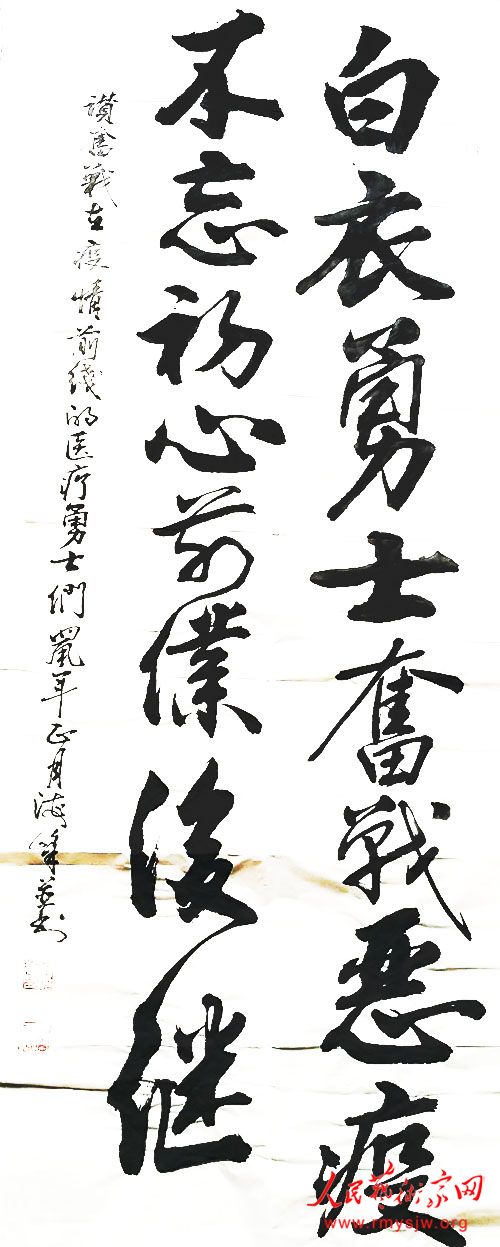 白衣勇士奮戰惡疫
不忘初心前僕後继
讃奮戰在疫情前线的医疗勇士們鼠年正月海峰并书
人民藝術家网
www.rmysjw.org